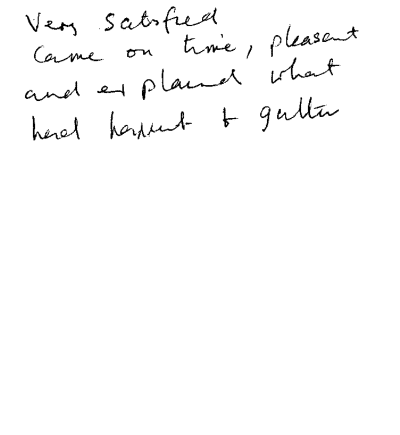 Very satisfied
Came on time, pleasant
and explained what
had happened to gutter